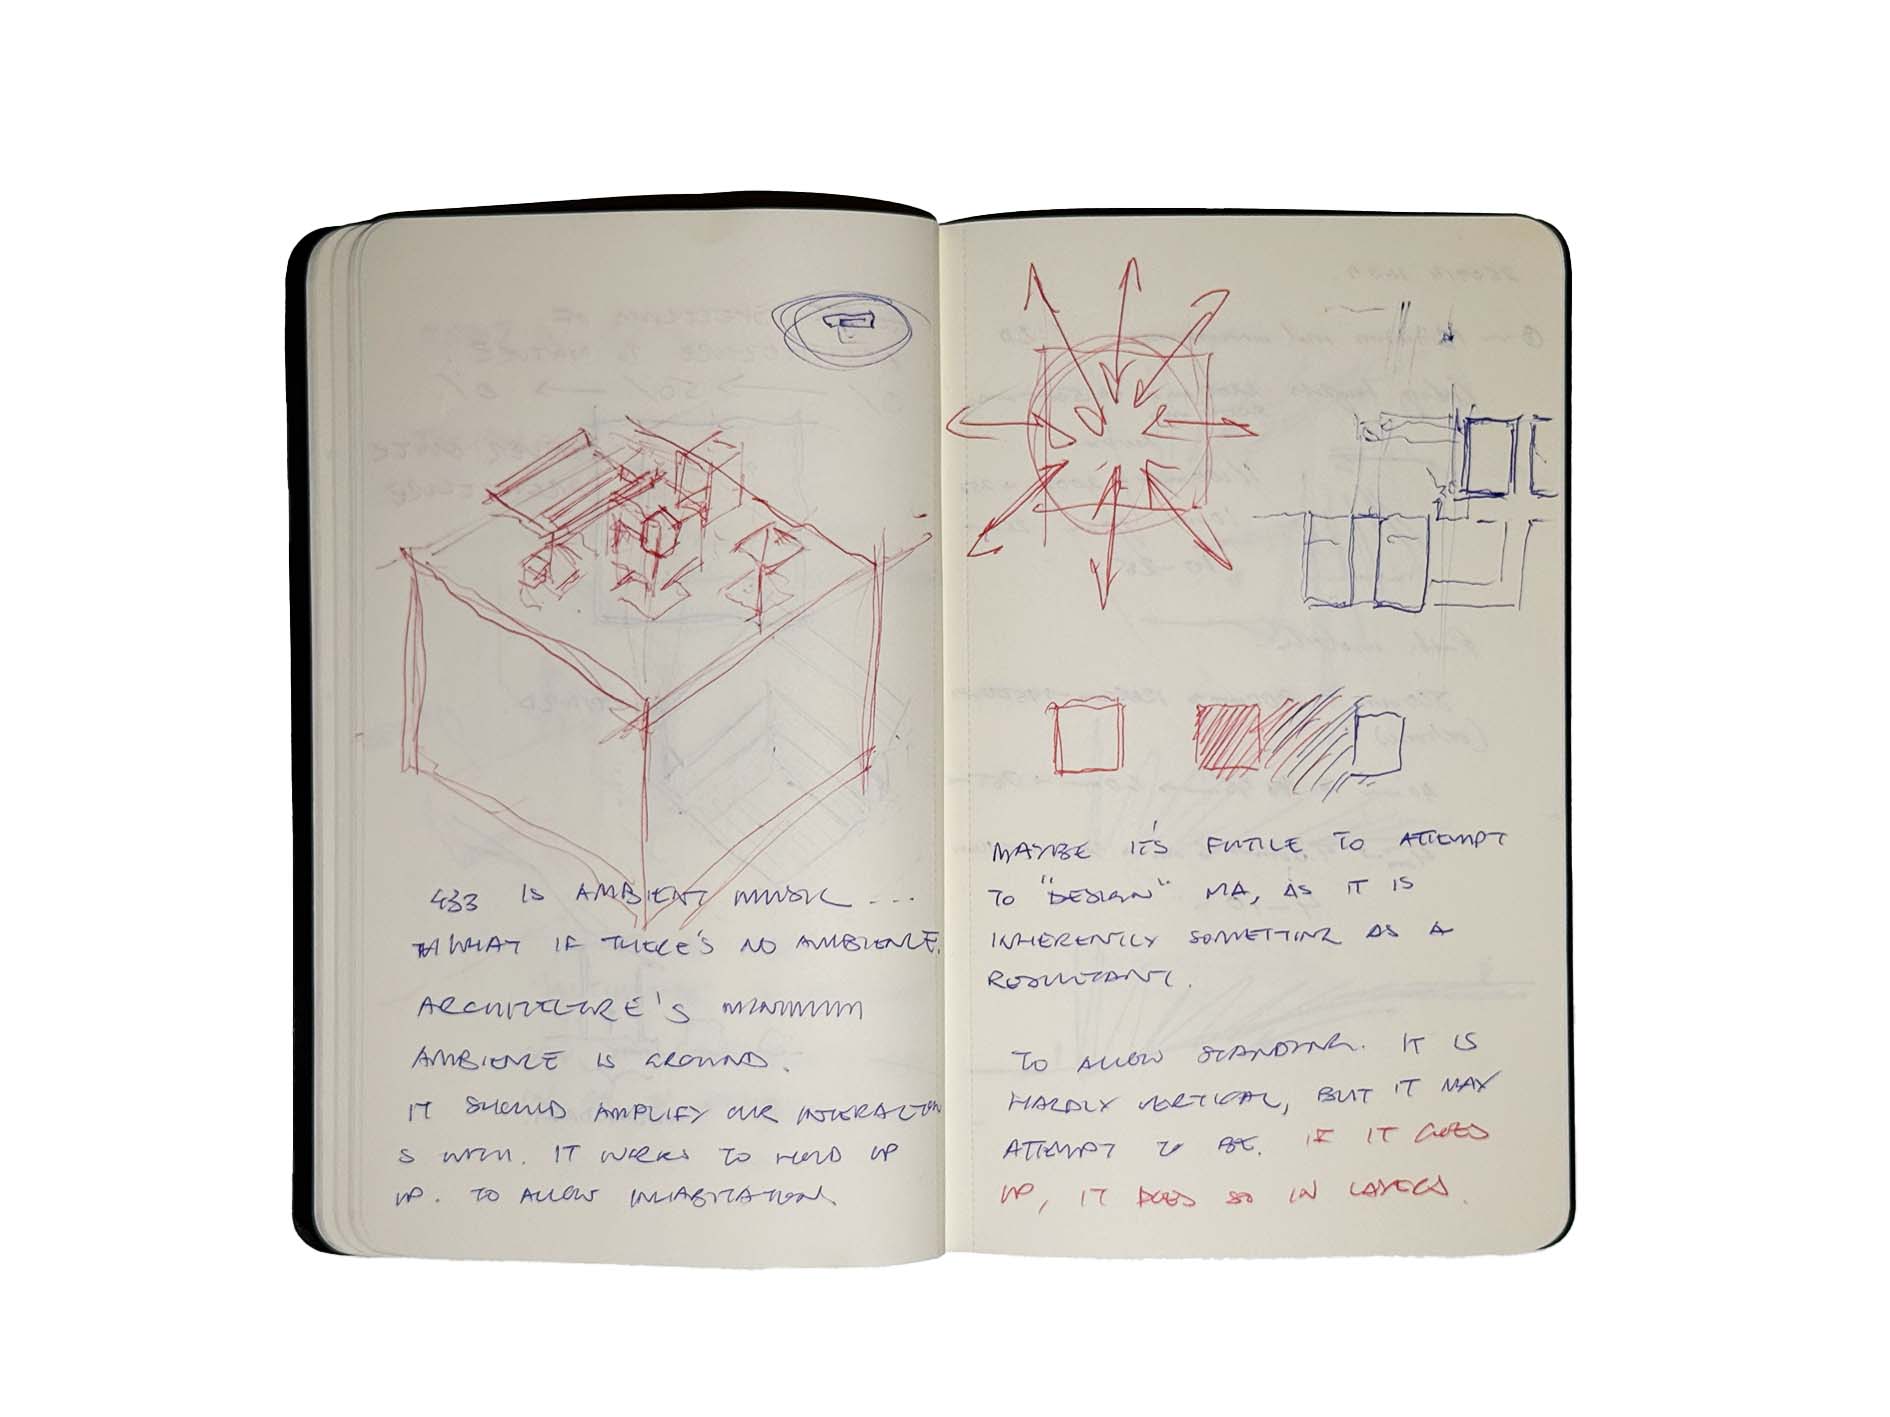 433 IS AMBIENT MUSIC ...
WHAT IF THERE'S NO AMBIENCE.
ARCHITECTURE'S MINIMUM
AMBIENCE IS GROUND.
IT SHOULD AMPLIFY OUR INTERACTION
S WITH. IT WORKS TO HOLD UP
UP. TO ALLOW INHABITATION
MAYBE IT'S FUTILE TO ATTEMPT
TO "DESIGN" MA, AS IT IS
INHERENTLY SOMETHING AS A
RESULTANT.
TO ALLOW STANDING. IT IS
HARDLY VERTICAL, BUT IT MAY
ATTEMPT TO BE. IF IT GOES
UP, IT DOES SO IN LAYERS.